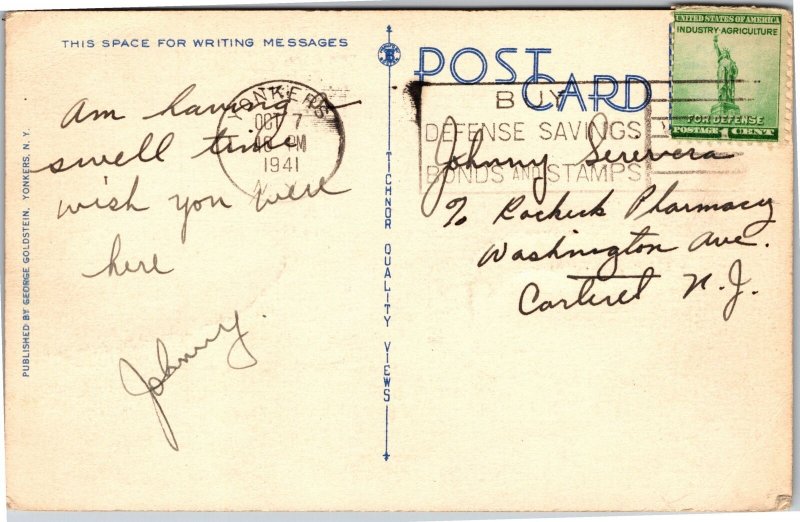 THIS SPACE FOR WRITING MESSAGES
Am having
swell time
wish you were
here
Johnny.
YONKERS
OCT 7
PM
1941
PUBLISHED BY GEORGE GOLDSTEIN, YONKERS, N. Y.
TICHNOR QUALITY VIEWS
POST CARD
BUY
DEFENSE SAVINGS
BONDS AND STAMPS
UNITED STATES OF AMERICA
INDUSTRY·AGRICULTURE
FOR DEFENSE
POSTAGE 1 CENT
Johnny
To Pharmacy
Washington Ave.
Carteret N.J.